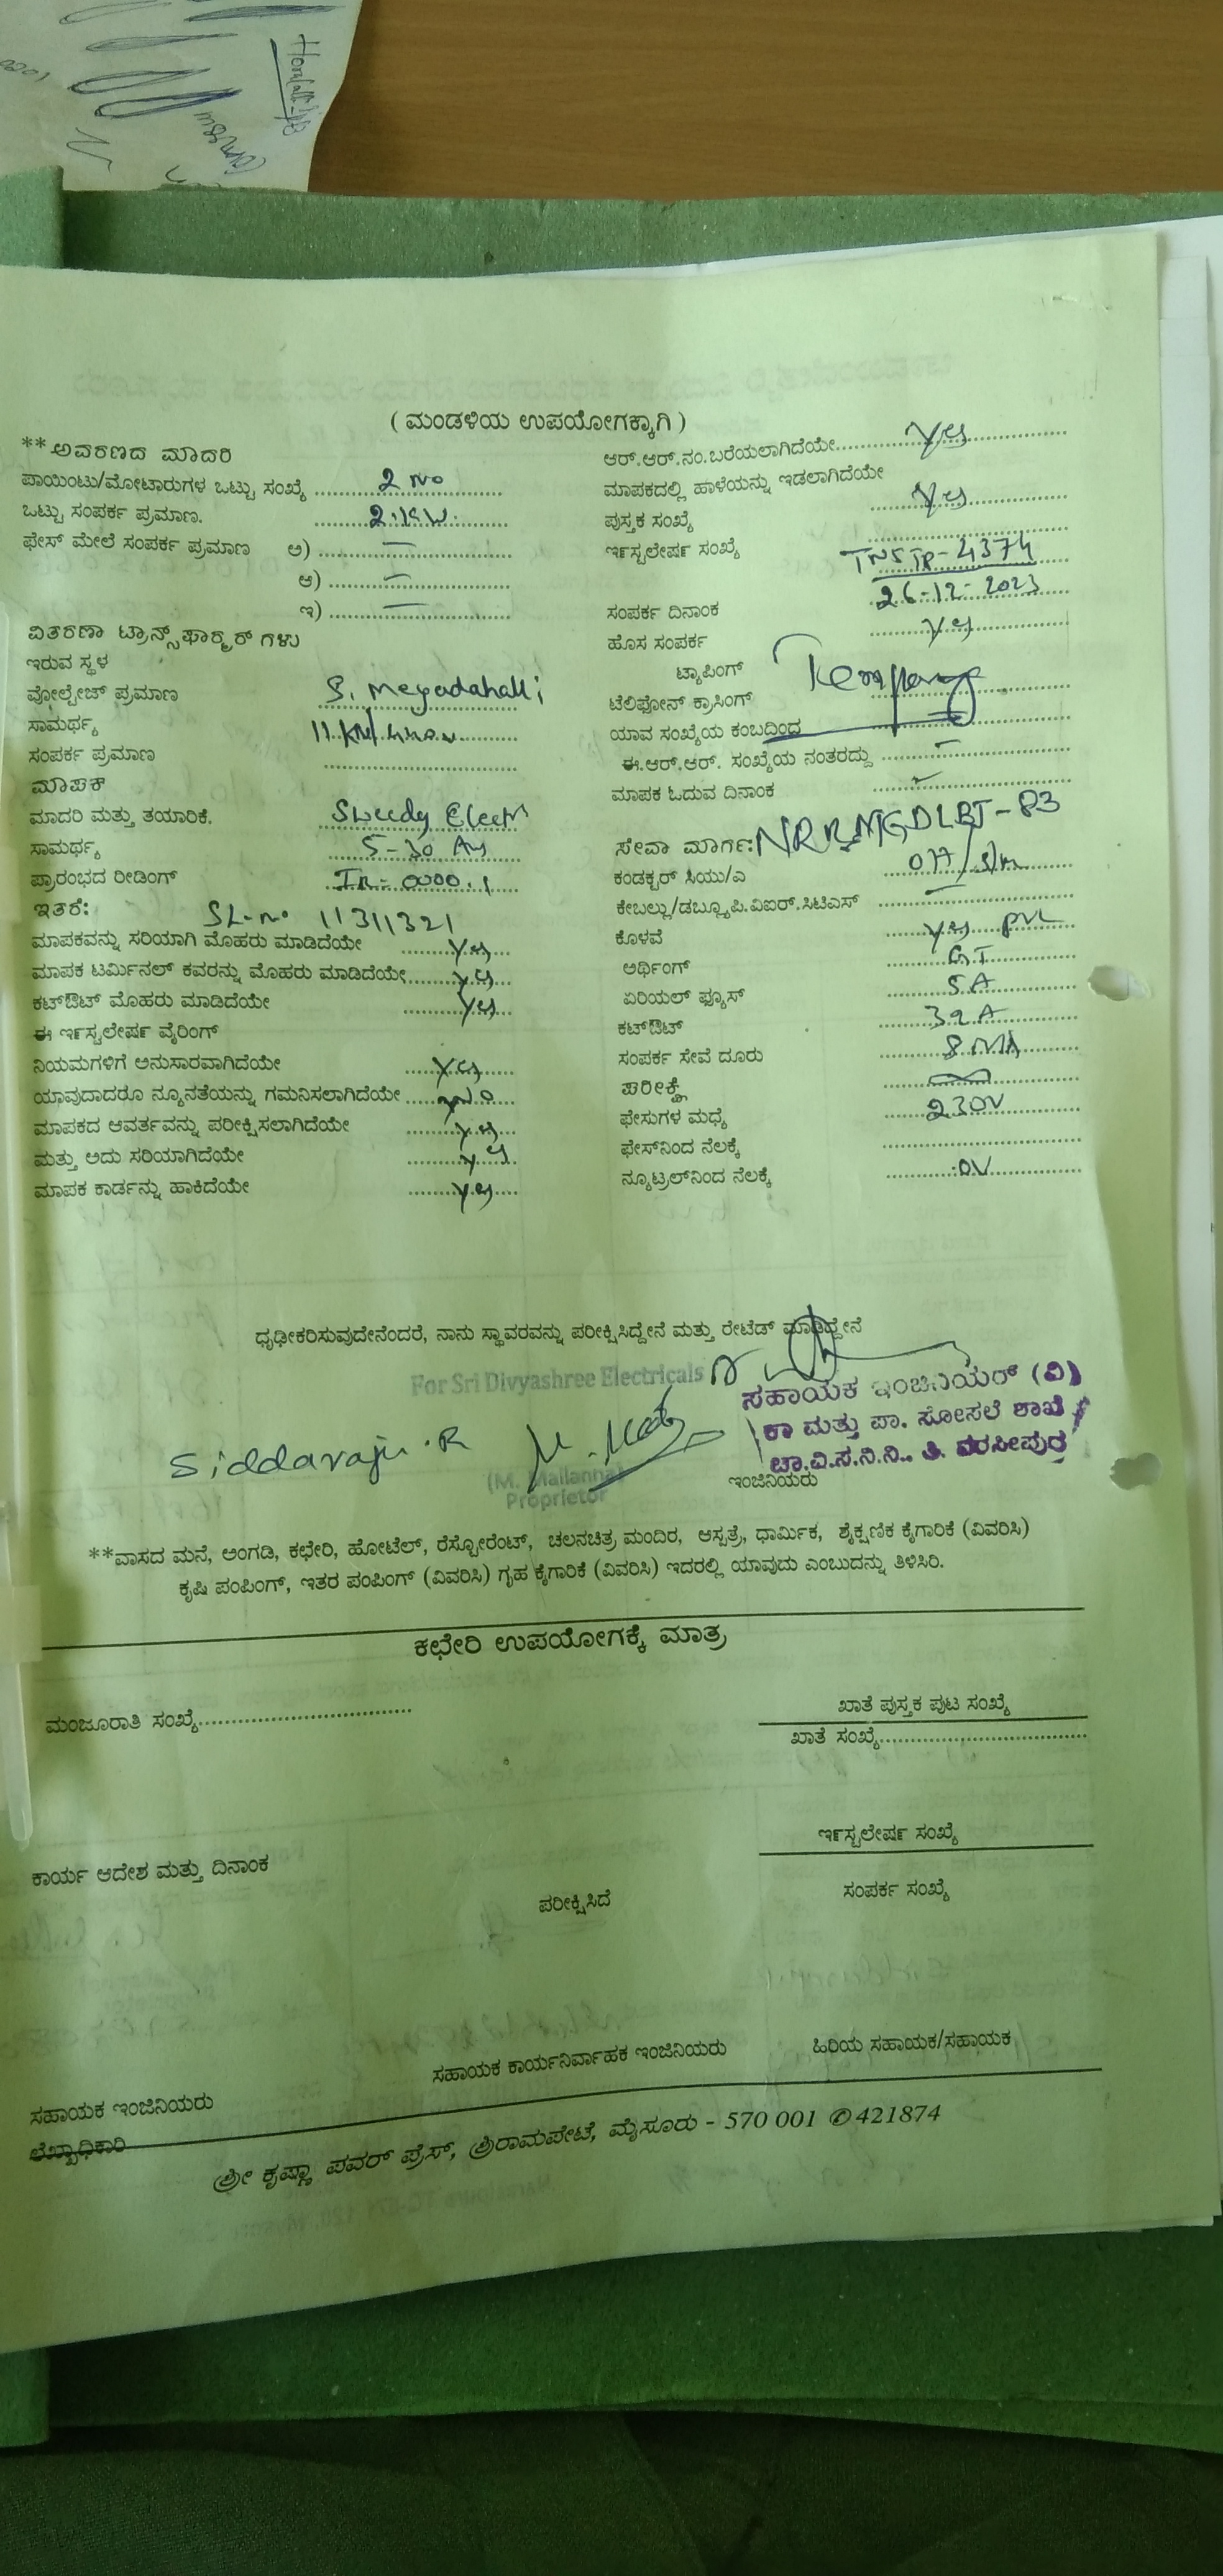 ( ಮಂಡಳಿಯ ಉಪಯೋಗಕ್ಕಾಗಿ )
**ಅವರಣದ ಮಾದರಿ
ಪಾಯಿಂಟು/ಮೋಟಾರುಗಳ ಒಟ್ಟು ಸಂಖ್ಯೆ 2 No
ಒಟ್ಟು ಸಂಪರ್ಕ ಪ್ರಮಾಣ.
ಫೇಸ್ ಮೇಲೆ ಸಂಪರ್ಕ ಪ್ರಮಾಣ ಅ) —
ಆ) —
ಇ) —
ವಿತರಣಾ ಟ್ರಾನ್ಸ್‌ಫಾರ್‍ಮರ್ ಗಳು
ಇರುವ ಸ್ಥಳ
ವೋಲ್ಟೇಜ್ ಪ್ರಮಾಣ S. Megadahalli
ಸಾಮರ್ಥ್ಯ
ಸಂಪರ್ಕ ಪ್ರಮಾಣ
ಮಾಪಕ
ಮಾದರಿ ಮತ್ತು ತಯಾರಿಕೆ.
ಸಾಮರ್ಥ್ಯ 5-30 A
ಪ್ರಾರಂಭದ ರೀಡಿಂಗ್ IR- 0000.1
ಇತರೆ: SL-no 11311321
ಮಾಪಕವನ್ನು ಸರಿಯಾಗಿ ಮೊಹರು ಮಾಡಿದೆಯೇ yes
ಮಾಪಕ ಟರ್ಮಿನಲ್ ಕವರನ್ನು ಮೊಹರು ಮಾಡಿದೆಯೇ yes
ಕಟ್‌ಔಟ್ ಮೊಹರು ಮಾಡಿದೆಯೇ yes
ಈ ಇನ್‌ಸ್ಟಲೇಷನ್ ವೈರಿಂಗ್
ನಿಯಮಗಳಿಗೆ ಅನುಸಾರವಾಗಿದೆಯೇ yes
ಯಾವುದಾದರೂ ನ್ಯೂನತೆಯನ್ನು ಗಮನಿಸಲಾಗಿದೆಯೇ No
ಮಾಪಕದ ಆವರ್ತವನ್ನು ಪರೀಕ್ಷಿಸಲಾಗಿದೆಯೇ yes
ಮತ್ತು ಅದು ಸರಿಯಾಗಿದೆಯೇ yes
ಮಾಪಕ ಕಾರ್ಡನ್ನು ಹಾಕಿದೆಯೇ yes
ಆರ್.ಆರ್.ನಂ.ಬರೆಯಲಾಗಿದೆಯೇ yes
ಮಾಪಕದಲ್ಲಿ ಹಾಳೆಯನ್ನು ಇಡಲಾಗಿದೆಯೇ yes
ಪುಸ್ತಕ ಸಂಖ್ಯೆ
ಇನ್‌ಸ್ಟಲೇಷನ್ ಸಂಖ್ಯೆ TNSTP-4374
ಸಂಪರ್ಕ ದಿನಾಂಕ 26-12-2023
ಹೊಸ ಸಂಪರ್ಕ yes
ಟ್ಯಾಪಿಂಗ್
ಟೆಲಿಫೋನ್ ಕ್ರಾಸಿಂಗ್
ಯಾವ ಸಂಖ್ಯೆಯ ಕಂಬದಿಂದ
ಈ.ಆರ್.ಆರ್. ಸಂಖ್ಯೆಯ ನಂತರದ್ದು —
ಮಾಪಕ ಓದುವ ದಿನಾಂಕ
ಸೇವಾ ಮಾರ್ಗ:
ಕಂಡಕ್ಟರ್ ಸಿಯು/ಎ
ಕೇಬಲ್ಲು/ಡಬ್ಲ್ಯೂಪಿ.ವಿಐರ್.ಸಿಟಿಎಸ್ —
ಕೊಳವೆ yes PVC
ಅರ್ಥಿಂಗ್ GI
ಏರಿಯಲ್ ಫ್ಯೂಸ್ 5A
ಕಟ್‌ಔಟ್ 32A
ಸಂಪರ್ಕ ಸೇವೆ ದೂರು
ಪರೀಕ್ಷೆ
ಫೇಸುಗಳ ಮಧ್ಯೆ 230V
ಫೇಸ್‌ನಿಂದ ನೆಲಕ್ಕೆ
ನ್ಯೂಟ್ರಲ್‌ನಿಂದ ನೆಲಕ್ಕೆ 0V
ಧೃಢೀಕರಿಸುವುದೇನೆಂದರೆ, ನಾನು ಸ್ಥಾವರವನ್ನು ಪರೀಕ್ಷಿಸಿದ್ದೇನೆ ಮತ್ತು ರೇಟೆಡ್ ಮಾಡಿದ್ದೇನೆ
For Sri Divyashree Electricals
ಸಹಾಯಕ ಇಂಜಿನಿಯರ್ (ವಿ)
ಕಾ ಮತ್ತು ಪಾ. ಸೋಸಲೆ ಶಾಖೆ
ಚಾ.ವಿ.ಸ.ನಿ.ನಿ., ತಿ. ನರಸೀಪುರ
Siddaraju .R
(M. Mallanna)
Proprietor
ಇಂಜಿನಿಯರು
**ವಾಸದ ಮನೆ, ಅಂಗಡಿ, ಕಛೇರಿ, ಹೋಟೆಲ್, ರೆಸ್ಟೋರೆಂಟ್, ಚಲನಚಿತ್ರ ಮಂದಿರ, ಆಸ್ಪತ್ರೆ, ಧಾರ್ಮಿಕ, ಶೈಕ್ಷಣಿಕ ಕೈಗಾರಿಕೆ (ವಿವರಿಸಿ)
ಕೃಷಿ ಪಂಪಿಂಗ್, ಇತರ ಪಂಪಿಂಗ್ (ವಿವರಿಸಿ) ಗೃಹ ಕೈಗಾರಿಕೆ (ವಿವರಿಸಿ) ಇದರಲ್ಲಿ ಯಾವುದು ಎಂಬುದನ್ನು ತಿಳಿಸಿರಿ.
ಕಛೇರಿ ಉಪಯೋಗಕ್ಕೆ ಮಾತ್ರ
ಮಂಜೂರಾತಿ ಸಂಖ್ಯೆ
ಖಾತೆ ಪುಸ್ತಕ ಪುಟ ಸಂಖ್ಯೆ
ಖಾತೆ ಸಂಖ್ಯೆ
ಇನ್‌ಸ್ಟಲೇಷನ್ ಸಂಖ್ಯೆ
ಕಾರ್ಯ ಆದೇಶ ಮತ್ತು ದಿನಾಂಕ
ಪರೀಕ್ಷಿಸಿದೆ
ಸಂಪರ್ಕ ಸಂಖ್ಯೆ
ಸಹಾಯಕ ಇಂಜಿನಿಯರು
ಸಹಾಯಕ ಕಾರ್ಯನಿರ್ವಾಹಕ ಇಂಜಿನಿಯರು
ಹಿರಿಯ ಸಹಾಯಕ/ಸಹಾಯಕ
ಲೆಖ್ಖಾಧಿಕಾರಿ
ಶ್ರೀ ಕೃಷ್ಣಾ ಪವರ್ ಪ್ರೆಸ್, ಶ್ರೀರಾಮಪೇಟೆ, ಮೈಸೂರು - 570 001 ✆ 421874